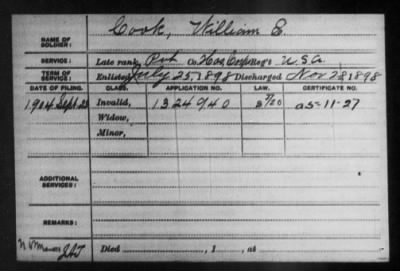 Cook, William E.
NAME OF SOLDIER:
SERVICE: Late rank, Pvt Co. Hos. Corps, Reg't U.S.A.
TERM OF SERVICE: Enlisted July 25, 1898 Discharged Nov 28, 1898
DATE OF FILING. CLASS. APPLICATION NO. LAW. CERTIFICATE NO.
1904 Sept. Invalid, 1324040
Widow,
Minor,
ADDITIONAL SERVICES:
REMARKS:
Died , 1 , at